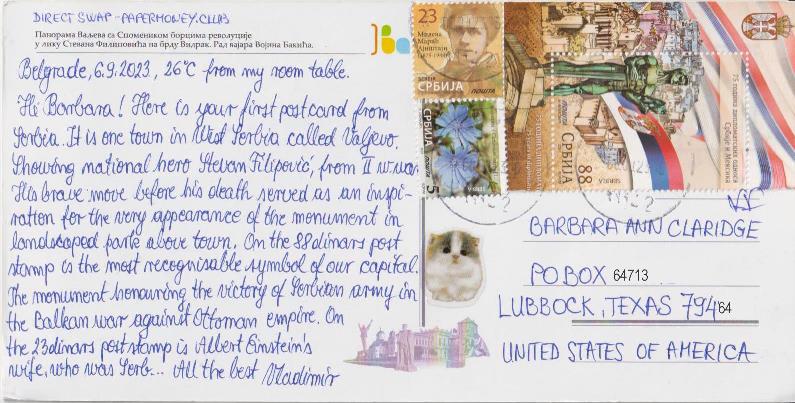 DIRECT SWAP - PAPERMONEY.CLUB
Панорама Ваљева са Спомеником борцима револуције
у лику Стевана Филиповића на брду Видрак. Рад вајара Војина Бакића.
Belgrade, 6.9.2023., 26°C from my room table.
Hi Barbara! Here is your first postcard from
Serbia. It is one town in West Serbia called Valjevo.
Showing national hero Stevan Filipović, from II w.war.
His brave move before his death served as an inspi-
ration for the very appearance of the monument in
landscaped parte above town. On the 88 dinars post
stamp is the most recognisable symbol of our capital.
The monument honouring the victory of Serbian army in
the Balkan war against Ottoman empire. On
the 23 dinars post stamp is Albert Einstein's
wife, who was Serb... All the best Vladimir
23
Милева
Марић
Ајнштајн
(1875-1948)
ПОШТА
СРБИЈА
СРБИЈА
ПОШТА
5
ПОШТА
СРБИЈА
SERBIA
88
75 година дипломатских односа
Србије и Мексика
BARBARA ANN CLARIDGE
PO BOX 64713
LUBBOCK, TEXAS 79464
UNITED STATES OF AMERICA